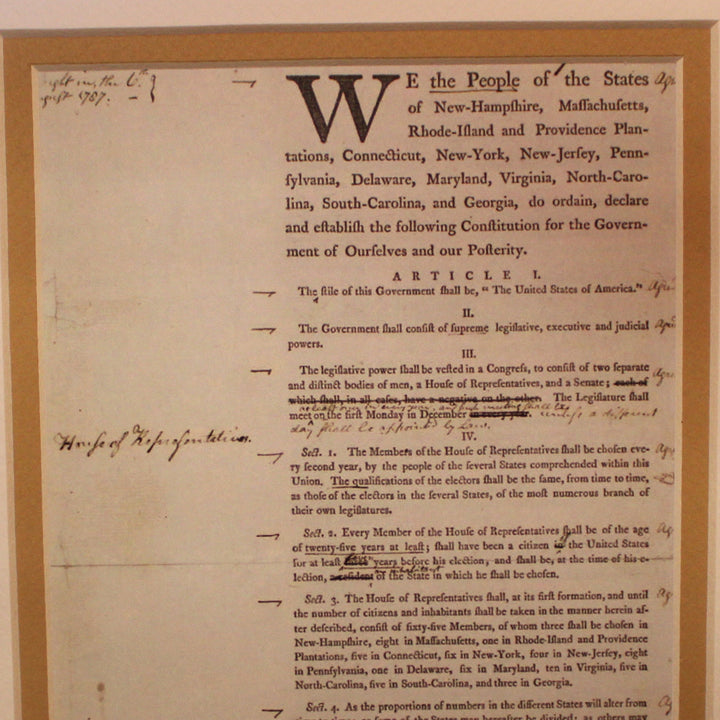 in the 6th
1787. —
WE the People of the States
of New-Hampſhire, Maſſachuſetts,
Rhode-Iſland and Providence Plan-
tations, Connecticut, New-York, New-Jerſey, Penn-
ſylvania, Delaware, Maryland, Virginia, North-Caro-
lina, South-Carolina, and Georgia, do ordain, declare
and eſtabliſh the following Conſtitution for the Govern-
ment of Ourſelves and our Poſterity.
ARTICLE I.
The ſtile of this Government ſhall be, “ The United States of America.”
II.
The Government ſhall conſiſt of ſupreme legiſlative, executive and judicial
powers.
III.
The legiſlative power ſhall be veſted in a Congreſs, to conſiſt of two ſeparate
and diſtinct bodies of men, a Houſe of Repreſentatives, and a Senate; each of
which ſhall, in all caſes, have a negative on the other. The Legiſlature ſhall
at least once in every year, and such meeting shall be
meet on the firſt Monday in December in every year. unless a different
day shall be appointed by law.
House of Representatives.
IV.
Sect. 1. The Members of the Houſe of Repreſentatives ſhall be choſen eve-
ry ſecond year, by the people of the ſeveral States comprehended within this
Union. The qualifications of the electors ſhall be the ſame, from time to time,
as thoſe of the electors in the ſeveral States, of the moſt numerous branch of
their own legiſlatures.
Sect. 2. Every Member of the Houſe of Repreſentatives ſhall be of the age
of twenty-five years at leaſt; ſhall have been a citizen the United States
for at leaſt years before his election; and ſhall be, at the time of his e-
lection, a reſident an inhabitant of the State in which he ſhall be choſen.
Sect. 3. The Houſe of Repreſentatives ſhall, at its firſt formation, and until
the number of citizens and inhabitants ſhall be taken in the manner herein af-
ter deſcribed, conſiſt of ſixty-five Members, of whom three ſhall be choſen in
New-Hampſhire, eight in Maſſachuſetts, one in Rhode-Iſland and Providence
Plantations, five in Connecticut, ſix in New-York, four in New-Jerſey, eight
in Pennſylvania, one in Delaware, ſix in Maryland, ten in Virginia, five in
North-Carolina, five in South-Carolina, and three in Georgia.
Sect. 4. As the proportions of numbers in the different States will alter from
time to time; as ſome of the States may hereafter be divided; as others may